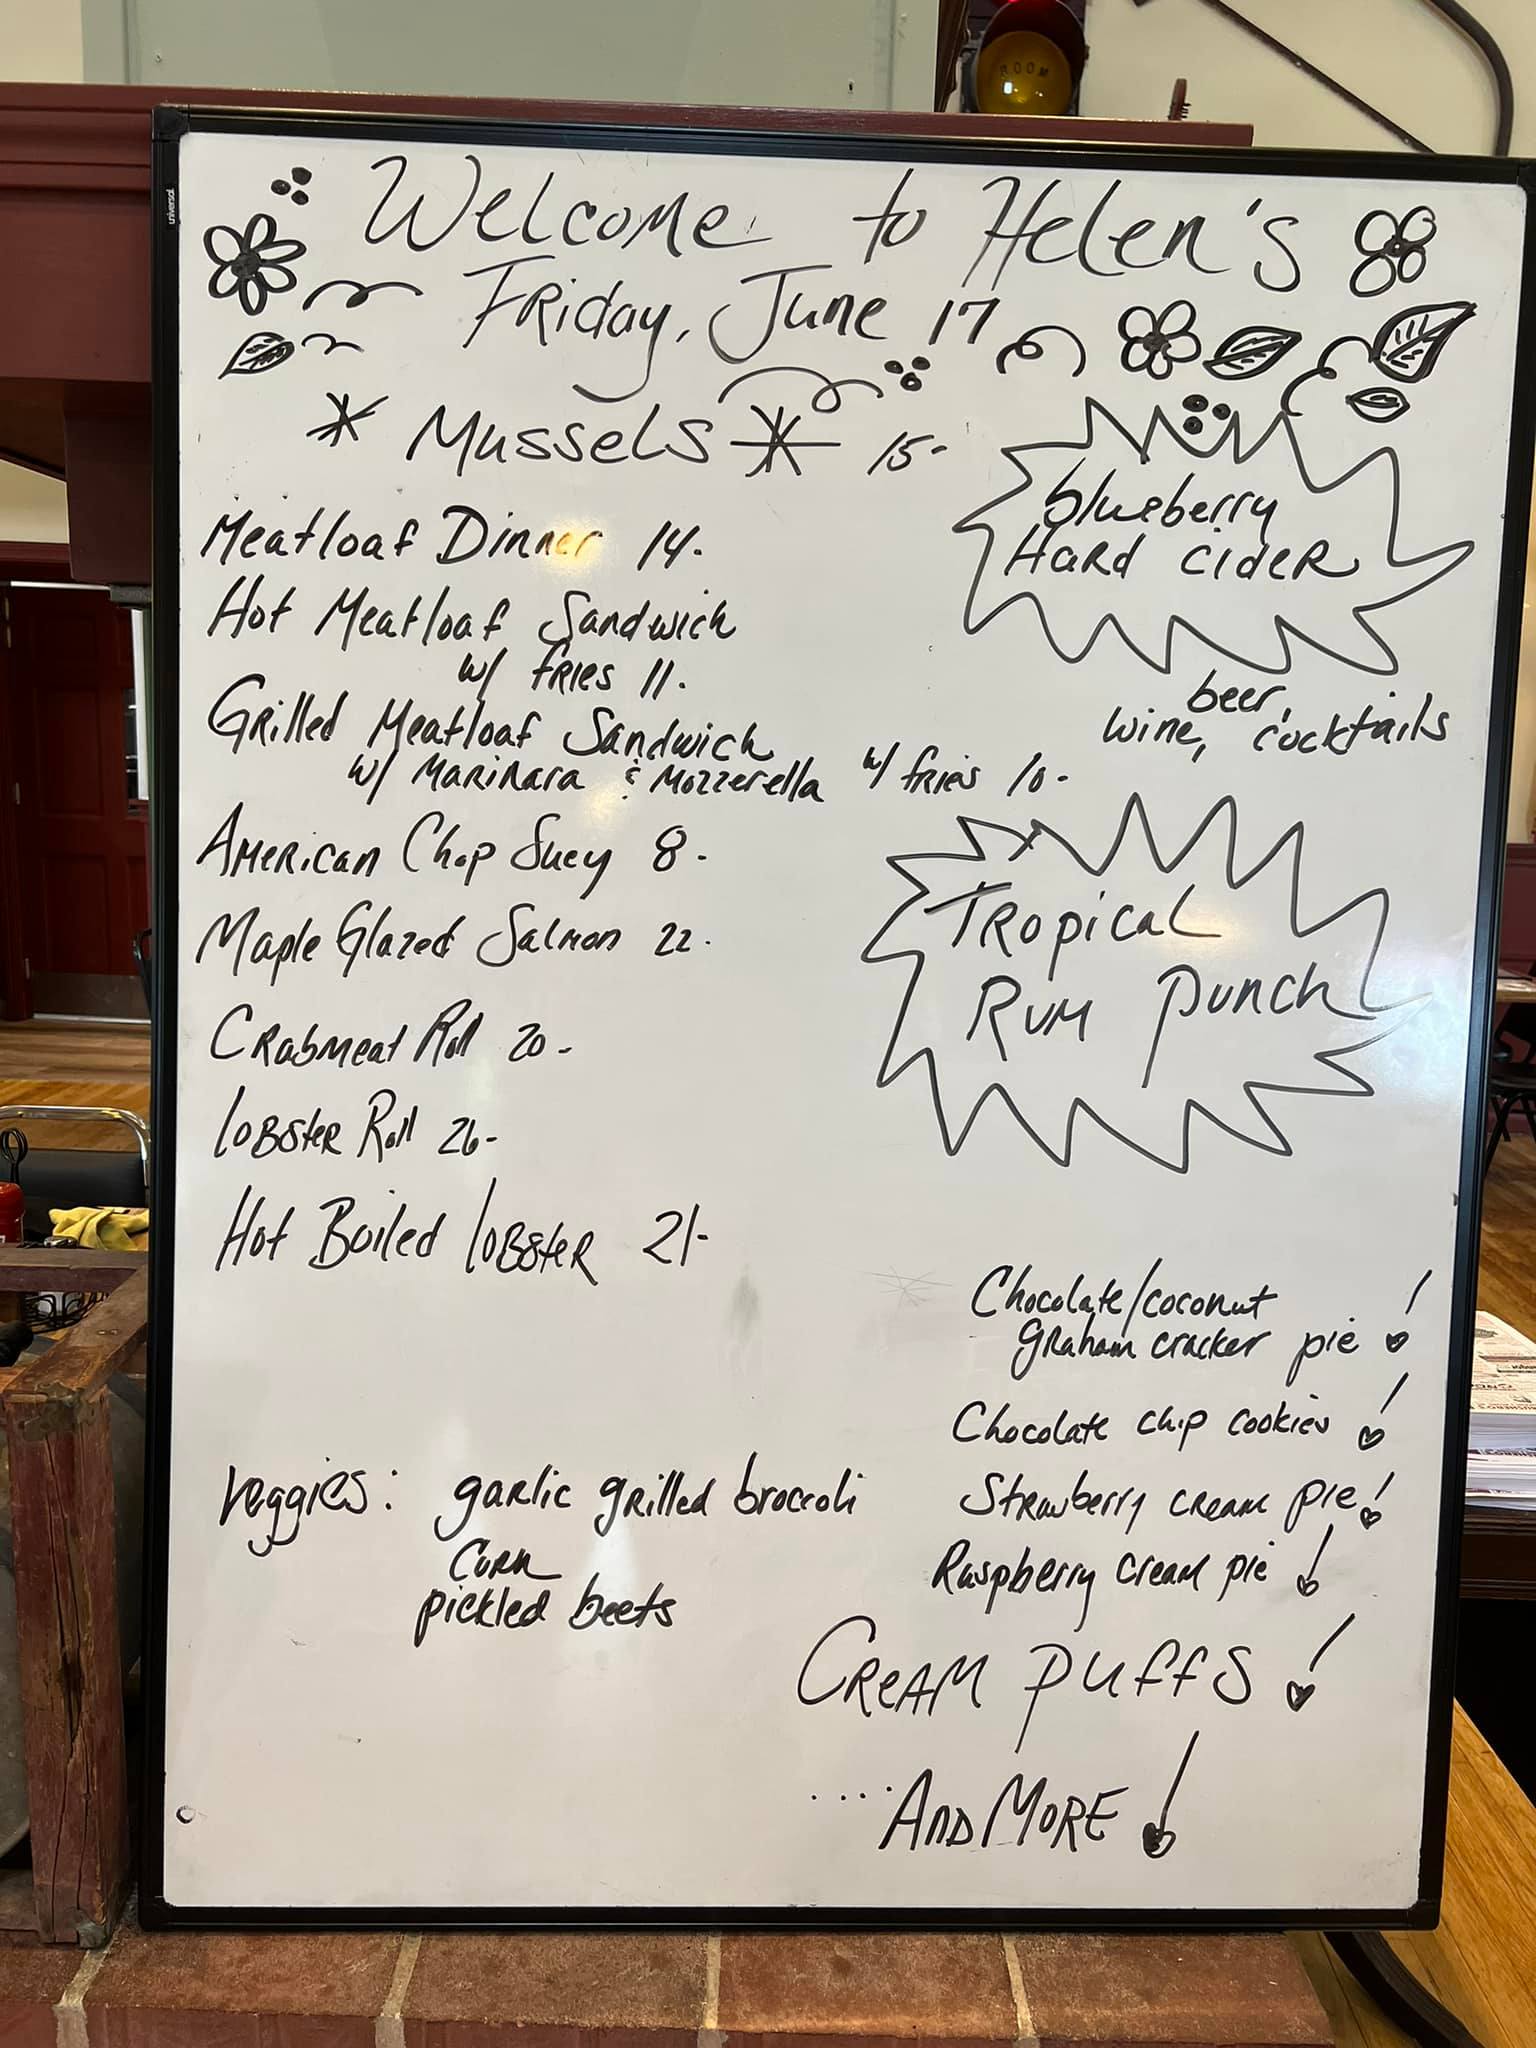 ROOM
universal
Welcome to Helen's
Friday, June 17
* Mussels * 15-
Meatloaf Dinner 14.
Hot Meatloaf Sandwich
w/ fries 11.
Grilled Meatloaf Sandwich
w/ Marinara & Mozzerella w/ fries 10-
American Chop Suey 8-
Maple Glazed Salmon 22.
Crabmeat Roll 20-
Lobster Roll 26-
Hot Boiled Lobster 21-
Veggies: garlic grilled broccoli
Corn
pickled beets
blueberry
Hard cider
beer,
wine, cocktails
Tropical
Rum punch
Chocolate/coconut
graham cracker pie!
Chocolate chip cookies!
Strawberry cream pie!
Raspberry cream pie!
Cream puffs!
.... And More!